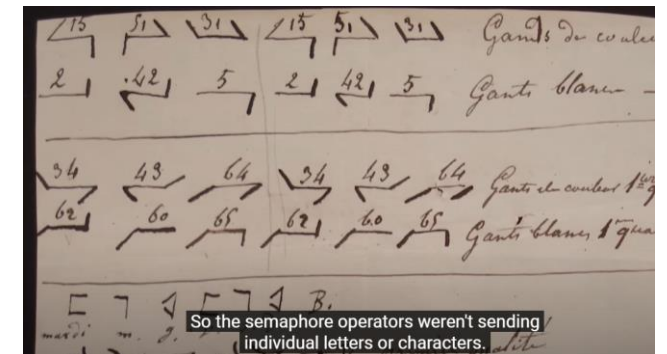 15 51 31 15 51 31 Gants de
2 .42 5 2 42 5 Gants blancs
34 43 64 34 43 64 Gants de couleur 1
62 60 65 62 60 65 Gants blancs 1
B.
mardi m. j.
So the semaphore operators weren't sending
individual letters or characters.